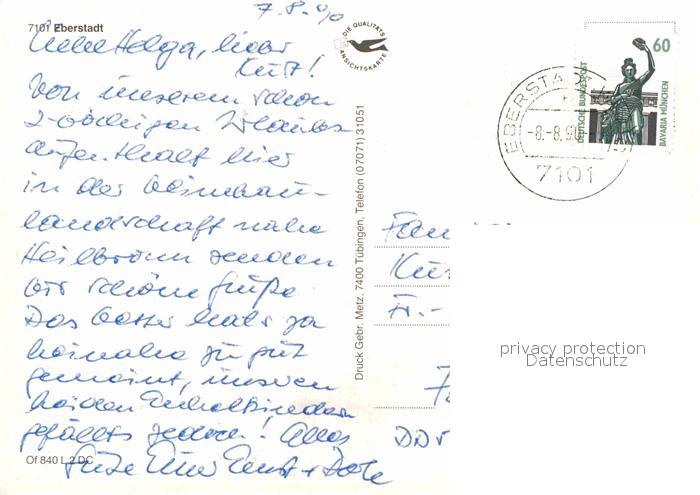 7.8.90
7101 Eberstadt
Liebe Helga, lieber
Kurt!
Von unserem schon
2-wöchigen Urlaubs-
aufenthalt hier
in der Weinbau-
landschaft nahe
Heilbronn senden
wir schöne Grüße.
Das Wetter hat's ja
beinahe zu gut
gemeint, unseren
beiden Enkelkindern
gefällts jedoch! Alles
Gute Eure Ernst +
Of 840 L 2 DC
DIE QUALITÄTS
ANSICHTSKARTE
Druck Gebr. Metz, 7400 Tübingen, Telefon (07071) 31051
EBERSTADT
-8.-8.90
7101
60
DEUTSCHE BUNDESPOST
BAVARIA MÜNCHEN
Fam
Kur
Fr.-
DDR
privacy protection
Datenschutz